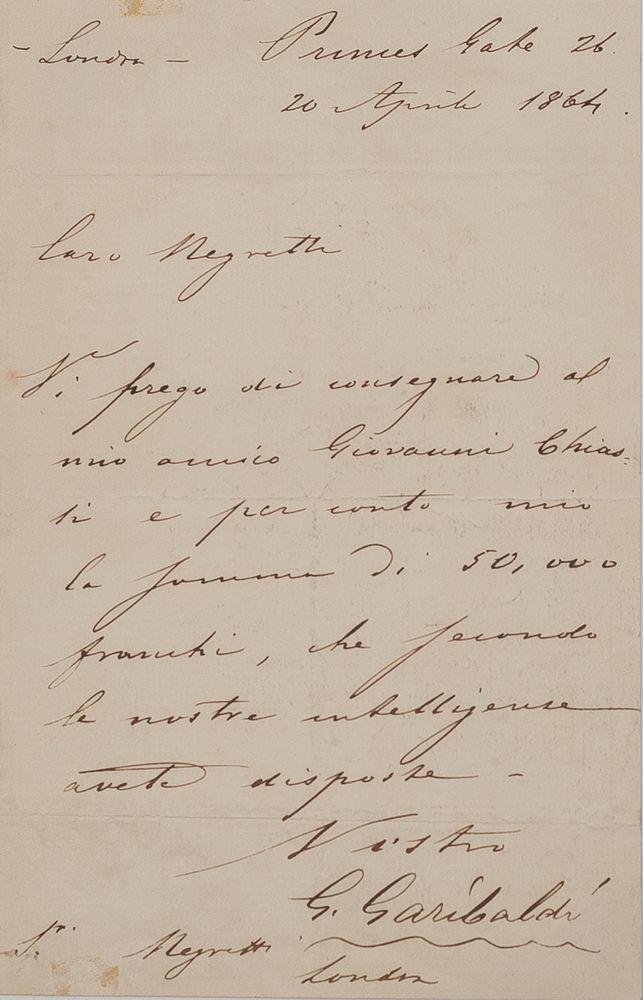 - Londra - Princes Gate 26.
20 Aprile 1864.
Caro Negretti
Vi prego di consegnare al
mio amico Giovanni Chias-
si e per conto mio
la somma di 50,000
franchi, che secondo
le nostre intelligense
avete disposte -
Vostro
G. Garibaldi
Sr. Negretti
Londra